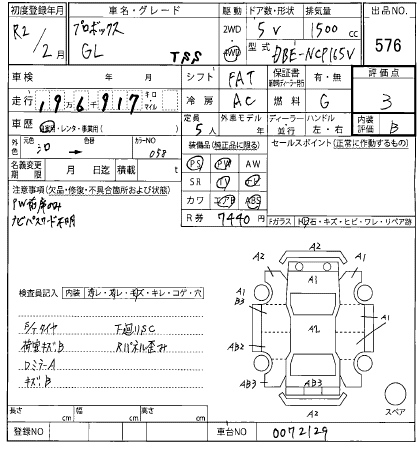 初度登録年月 車名・グレード 駆動 ドア数・形状 排気量 出品NO.
R2/2月 プロボックス GL TSS 2WD 4WD 5V 1500cc 576
型式 DBE-NCP165V
車検 年 月 シフト FAT 保証書 有・無 評価点
走行 19万6千917 キロ マイル 冷房 AC 燃料 G 3
車歴 自家用・レンタ・事業用( ) 定員 5人 外車モデル 年 ディーラー 並行 ハンドル 左・右 内装評価 B
外色 元色 シロ → 色替 カラーNO 058 装備品(純正品に限る) セールスポイント(正常に動作するもの)
名義変更期限 月 日迄 積載量 t PS PW AW
注意事項(欠品・修復・不具合箇所および状態) SR TV
ナビパスワード不明 カワ エアB ABS
R券 7440円 Fガラス トビ石・キズ・ヒビ・ワレ・リペア跡
検査員記入 内装 汚レ・スレ・キズ・キレ・コゲ・穴
下廻りSC
荷室キズB Rパネル歪み
DミラーA
キズB
A2
A1 A1 A1
B3
A2 A1
AB2
AB3 AB3 A3
A2
スペア
長さ cm 幅 cm 高さ cm
登録NO 車台NO 0072129